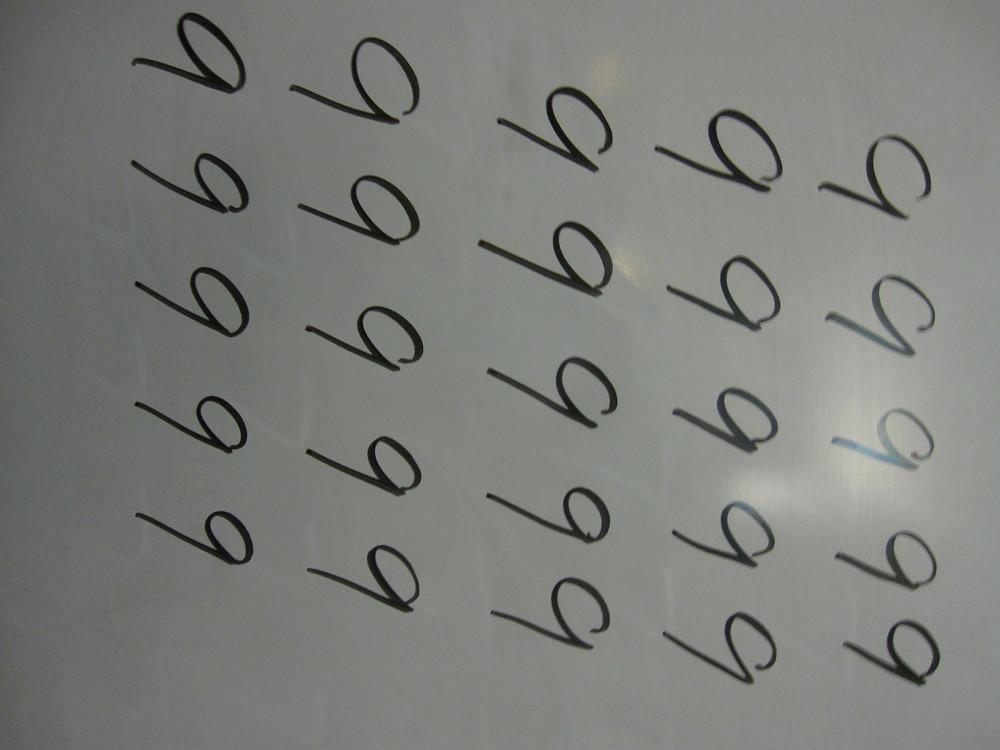 9 9 9 9 9
9 9 9 9 9
9 9 9 9 9
9 9 9 9 9
9 9 9 9 9